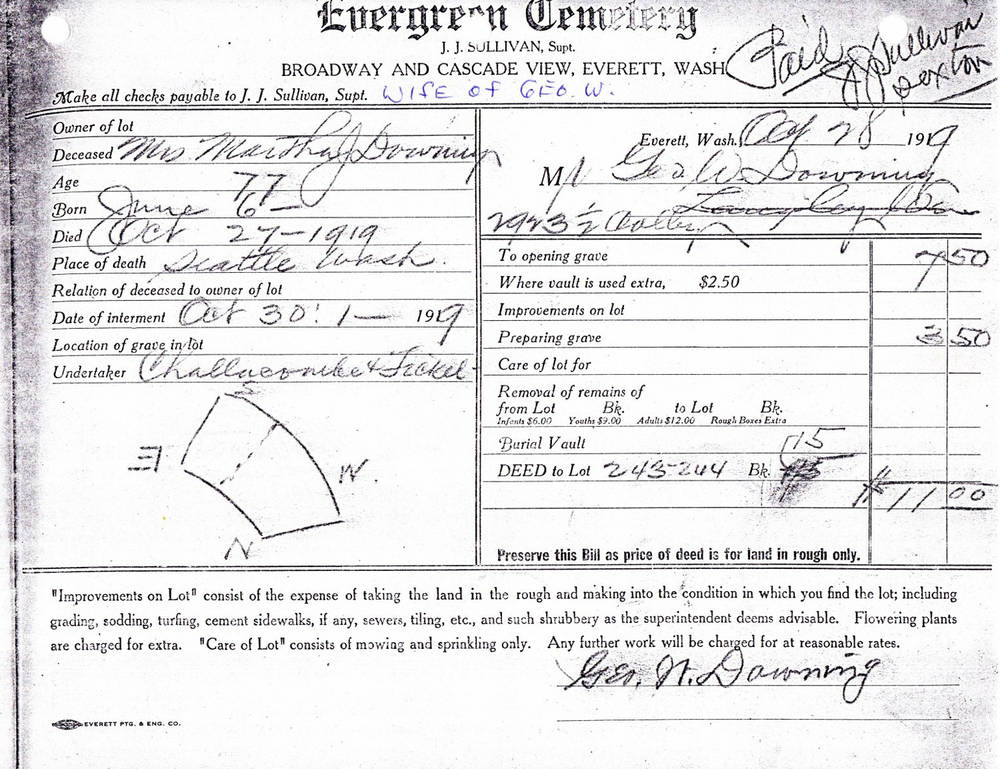 Evergreen Cemetery
J. J. SULLIVAN, Supt.
BROADWAY AND CASCADE VIEW, EVERETT, WASH.
Paid J J Sullivan
Sexton
Make all checks payable to J. J. Sullivan, Supt. WIFE OF GEO. W.
Owner of lot
Deceased Mrs Martha J Downing
Age 77
Born June 6-
Died Oct 27-1919
Place of death Seattle Wash.
Relation of deceased to owner of lot
Date of interment Oct 30' 1- 1919
Location of grave in lot
Undertaker Challacombe & Fickel
S
E
W.
N
Everett, Wash., Oct 28 1919
Mr Geo W Downing
2923 1/2 Colby
To opening grave 7 50
Where vault is used extra, $2.50
Improvements on lot
Preparing grave 3 50
Care of lot for
Removal of remains of
from Lot Bk. to Lot Bk.
Infants $6.00 Youths $9.00 Adults $12.00 Rough Boxes Extra
Burial Vault 15
DEED to Lot 243-244 Bk.
$ 11 00
Preserve this Bill as price of deed is for land in rough only.
"Improvements on Lot" consist of the expense of taking the land in the rough and making into the condition in which you find the lot; including
grading, sodding, turfing, cement sidewalks, if any, sewers, tiling, etc., and such shrubbery as the superintendent deems advisable. Flowering plants
are charged for extra. "Care of Lot" consists of mowing and sprinkling only. Any further work will be charged for at reasonable rates.
Geo. W. Downing
EVERETT PTG. & ENG. CO.